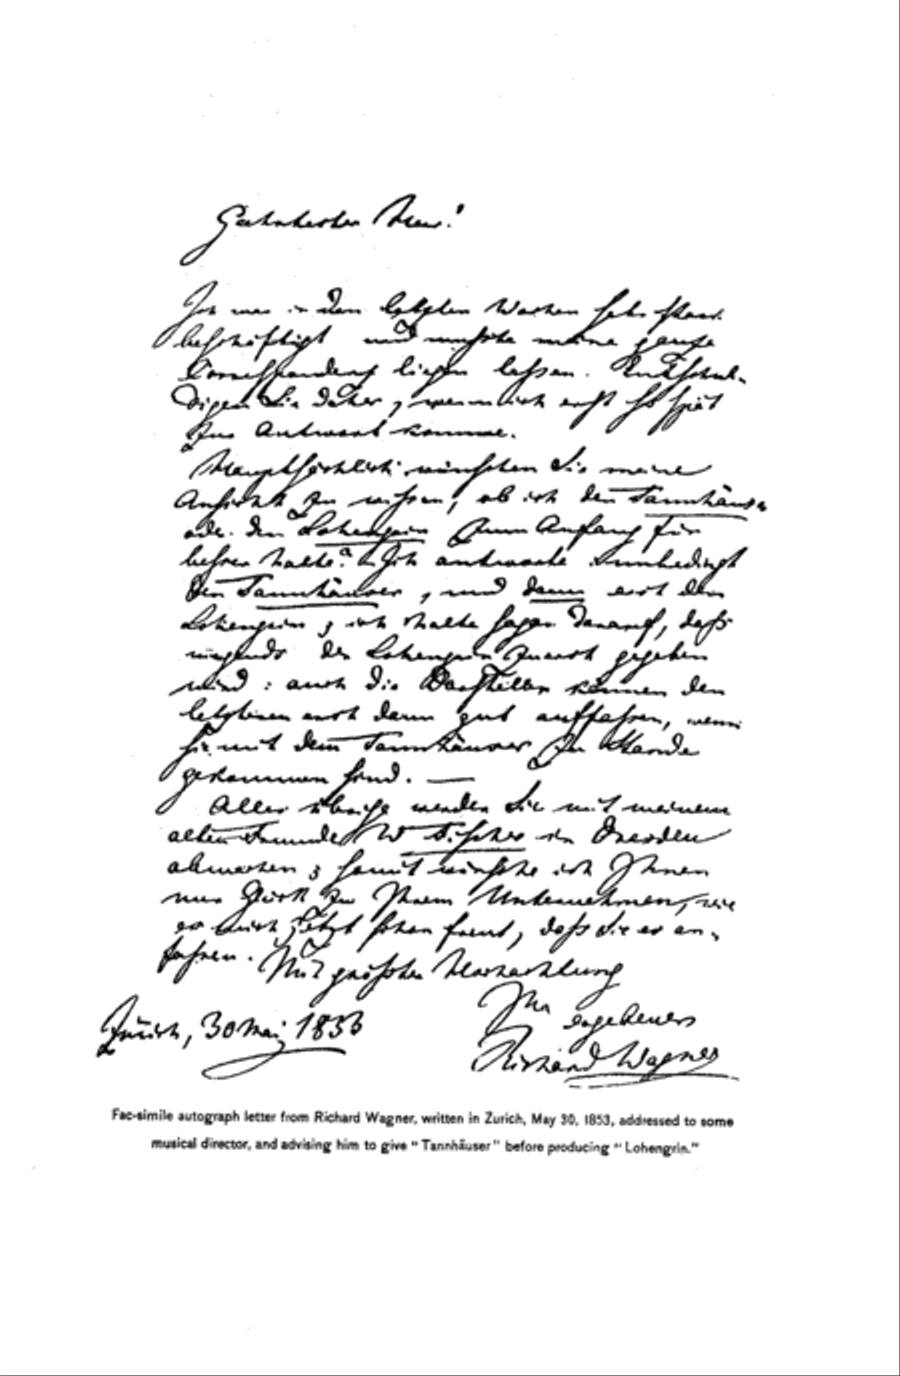 Geehrtester Herr!
Ich war in den letzten Wochen sehr stark
beschäftigt und mußte meine ganze
Correspondenz liegen lassen. Entschul-
digen Sie daher, wenn ich erst so spät
zur Antwort komme.
Hauptsächlich wünschen Sie meine
Ansicht zu wissen, ob ich den Tannhäuser
oder den Lohengrin zum Anfang für
besser halte? Ich antworte unbedingt
den Tannhäuser, und dann erst den
Lohengrin; ich halte sogar darauf, daß
nirgends der Lohengrin zuerst gegeben
wird: auch die Darsteller können den
letzteren erst dann gut auffassen, wenn
sie mit dem Tannhäuser zu Stande
gekommen sind. —
Alles übrige werden Sie mit meinem
alten Freunde W Fischer in Dresden
abmachen; somit wünsche ich Ihnen
nur Glück zu Ihrem Unternehmen, wie
es mich jetzt schon freut, daß Sie es an-
fassen. Mit größter Hochachtung
Ihr ergebener
Zürich, 30 Mai 1853
Richard Wagner
Fac-simile autograph letter from Richard Wagner, written in Zurich, May 30, 1853, addressed to some
musical director, and advising him to give "Tannhäuser" before producing "Lohengrin."